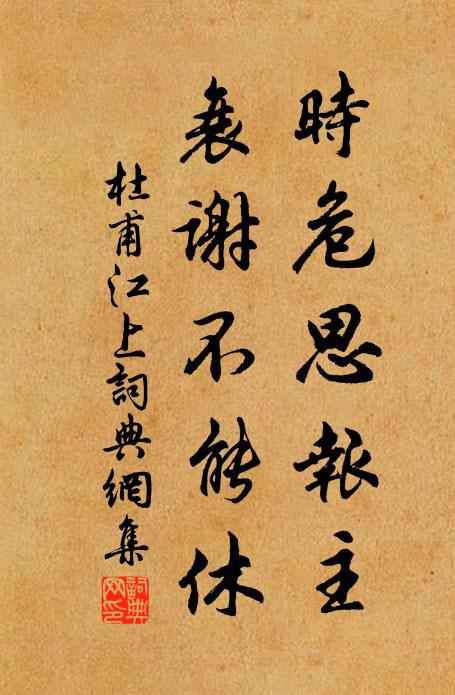 時危思報主
衰謝不能休
杜甫江上詞典網集
詞典網印